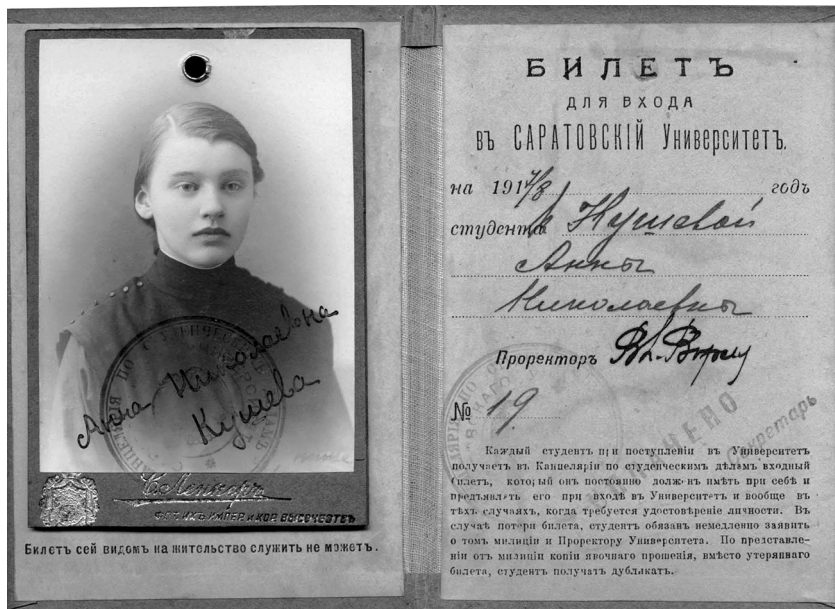 Анна Николаевна
Кушева
С. Ленгоръ
ФОТ. ИХЪ ИМПЕР. И КОР. ВЫСОЧЕСТВЪ
Билетъ сей видомъ на жительство служить не можетъ.
БИЛЕТЪ
ДЛЯ ВХОДА
въ САРАТОВСКІЙ Университетъ.
на 1917/8 годъ
студента Кушевой
Анны
Николаевны
Проректоръ
№ 19.
Каждый студент при поступленіи въ Университетъ
получаетъ въ Канцеляріи по студенческимъ дѣламъ входный
билетъ, который онъ постоянно долженъ имѣть при себѣ и
предъявлять его при входѣ въ Университетъ и вообще въ
тѣхъ случаяхъ, когда требуется удостовѣреніе личности. Въ
случаѣ потери билета, студентъ обязанъ немедленно заявить
о томъ милиціи и Проректору Университета. По представле-
ніи отъ милиціи копіи явочнаго прошенія, вмѣсто утеряннаго
билета, студентъ получатъ дубликатъ.
Секретарь